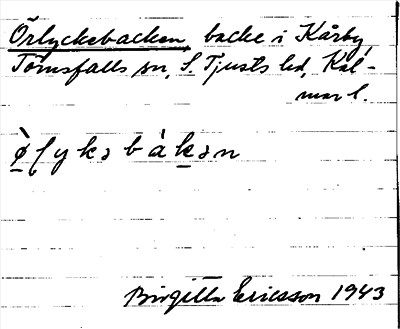 Örlyckebacken, backe i Kårby,
Törnsfalls sn, S. Tjusts hd, Kal-
mar l.
Birgitta Ericsson 1943